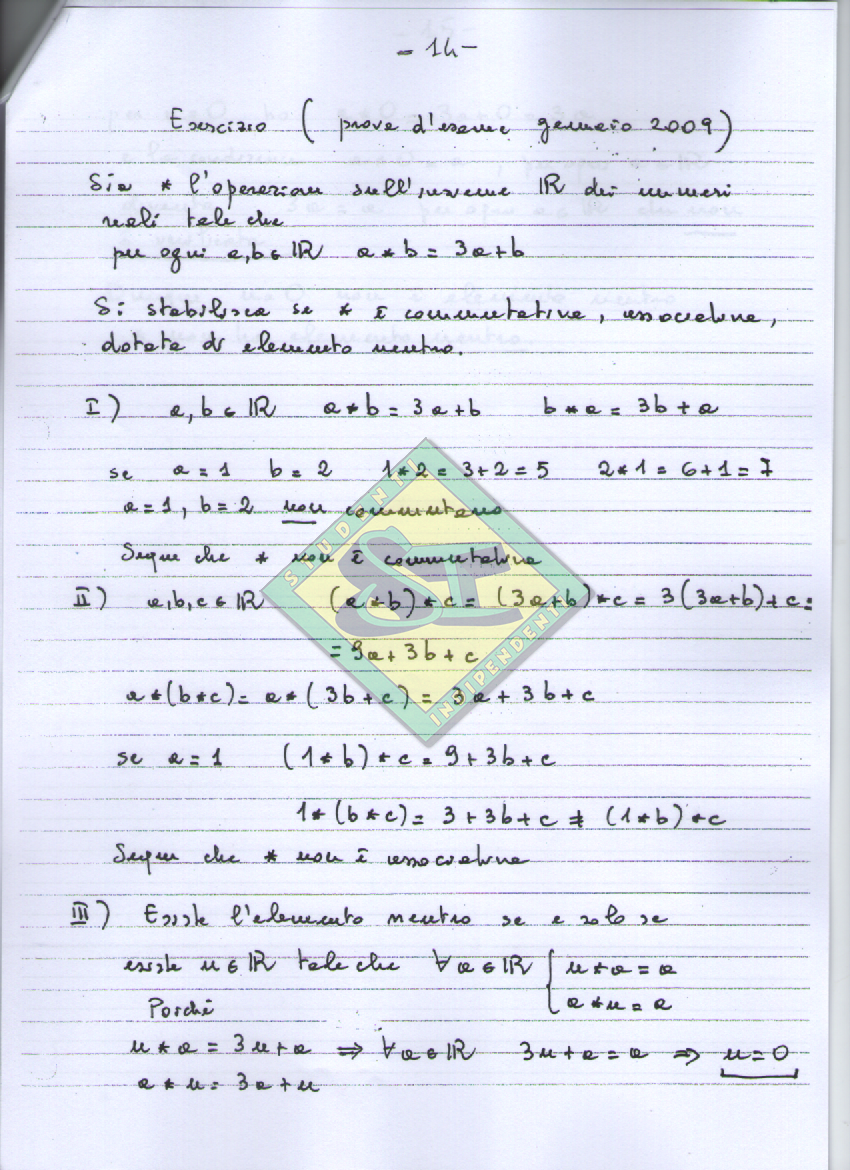 - 14 -
Esercizio ( prova d'esame gennaio 2009)
Sia * l'operazione sull'insieme ℝ dei numeri
reali tale che
per ogni a,b ∈ ℝ a * b = 3a+b
Si stabilisca se * è commutativa, associativa,
dotata di elemento neutro.
I) a, b ∈ ℝ a * b = 3a+b b * a = 3b + a
se a = 1 b = 2 1 * 2 = 3 + 2 = 5 2 * 1 = 6 + 1 = 7
a = 1, b = 2 non commutano
Segue che * non è commutativa
II) a,b,c ∈ ℝ (a * b) * c = (3a+b) * c = 3(3a+b)+c =
= 9a + 3b + c
a * (b * c) = a * (3b + c) = 3a + 3b + c
se a = 1 (1 * b) * c = 9 + 3b + c
1 * (b * c) = 3 + 3b + c ≠ (1 * b) * c
Segue che * non è associativa
III) Esiste l'elemento neutro se e solo se
esiste u ∈ ℝ tale che ∀a ∈ ℝ { u * a = a
a * u = a
Poichè
u * a = 3u + a ⇒ ∀a ∈ ℝ 3u + a = a ⇒ u = 0
a * u = 3a + u
STUDENTI
SI
INDIPENDENTI